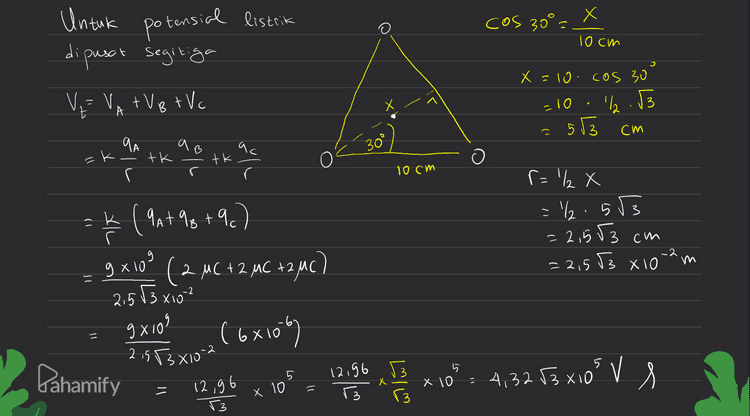 Untuk potensial listrik
dipusat segitiga
V_t = V_A + V_B + V_C
= k q_A/r + k q_B/r + k q_C/r
= k/r (q_A + q_B + q_C)
= 9 x 10^9 / 2,5√3 x 10^-2 (2 μC + 2 μC + 2 μC)
= 9 x 10^9 / 2,5√3 x 10^-2 (6 x 10^-6)
= 12,96/√3 x 10^5 = 12,96/√3 x √3/√3 x 10^5 = 4,32 √3 x 10^5 V
x
30°
10 cm
cos 30° = x / 10 cm
x = 10 . cos 30°
= 10 . 1/2 . √3
= 5√3 cm
r = 1/2 x
= 1/2 . 5√3
= 2,5√3 cm
= 2,5√3 x 10^-2 m
Pahamify